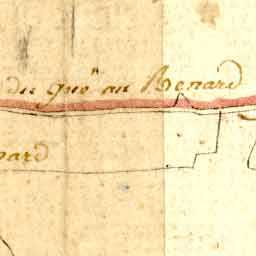 du gué au Renard
nard